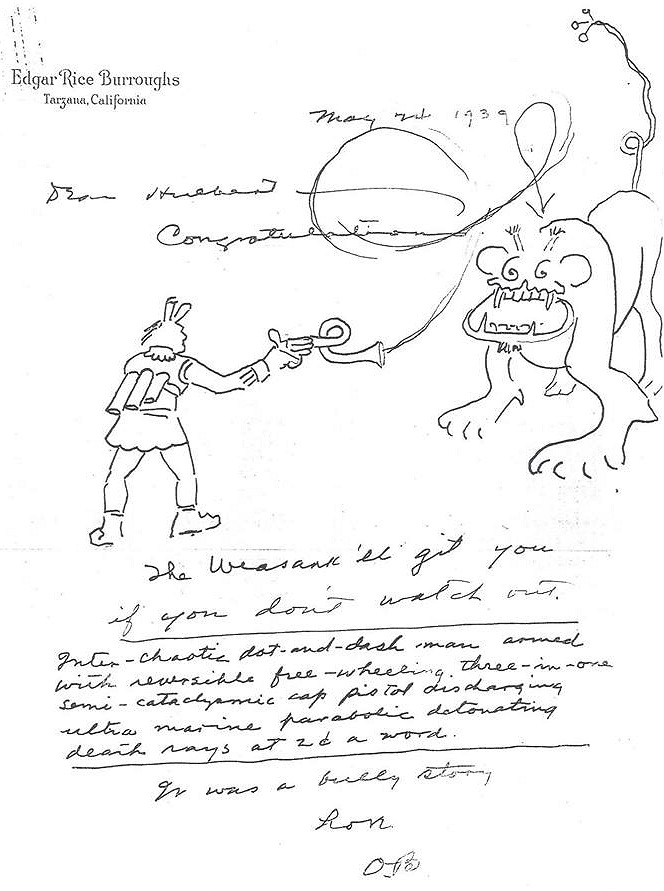 Edgar Rice Burroughs
Tarzana, California
May 24 1939
Dear Hulbert
Congratulations
The Weasank'll git you
if you don't watch out.
Inter-chaotic dot-and-dash man armed
with reversible free-wheeling, three-in-one
semi-cataclysmic cap pistol discharging
ultra marine parabolic detonating
death rays at 2¢ a word.
It was a bully story
OB